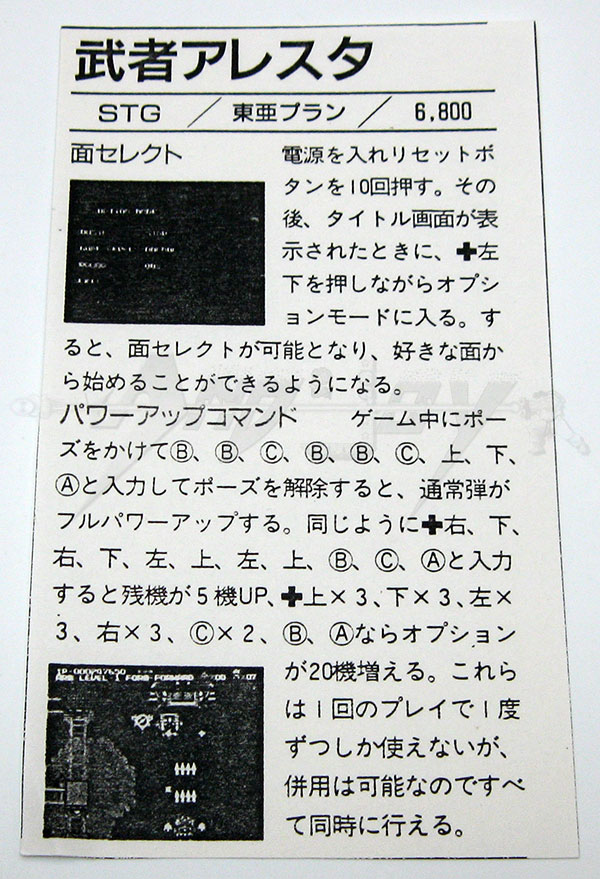 武者アレスタ
STG／東亜プラン／6,800
面セレクト
電源を入れリセットボ
タンを10回押す。その
後、タイトル画面が表
示されたときに、✚左
下を押しながらオプシ
ョンモードに入る。す
ると、面セレクトが可能となり、好きな面か
ら始めることができるようになる。
パワーアップコマンド　ゲーム中にポー
ズをかけてⒷ、Ⓑ、Ⓒ、Ⓑ、Ⓑ、Ⓒ、上、下、
Ⓐと入力してポーズを解除すると、通常弾が
フルパワーアップする。同じように✚右、下、
右、下、左、上、左、上、Ⓑ、Ⓒ、Ⓐと入力
すると残機が5機UP、✚上×3、下×3、左×
3、右×3、Ⓒ×2、Ⓑ、Ⓐならオプション
が20機増える。これら
は1回のプレイで1度
ずつしか使えないが、
併用は可能なのですべ
て同時に行える。
ARM LEVEL-1 FORM-FORWARD